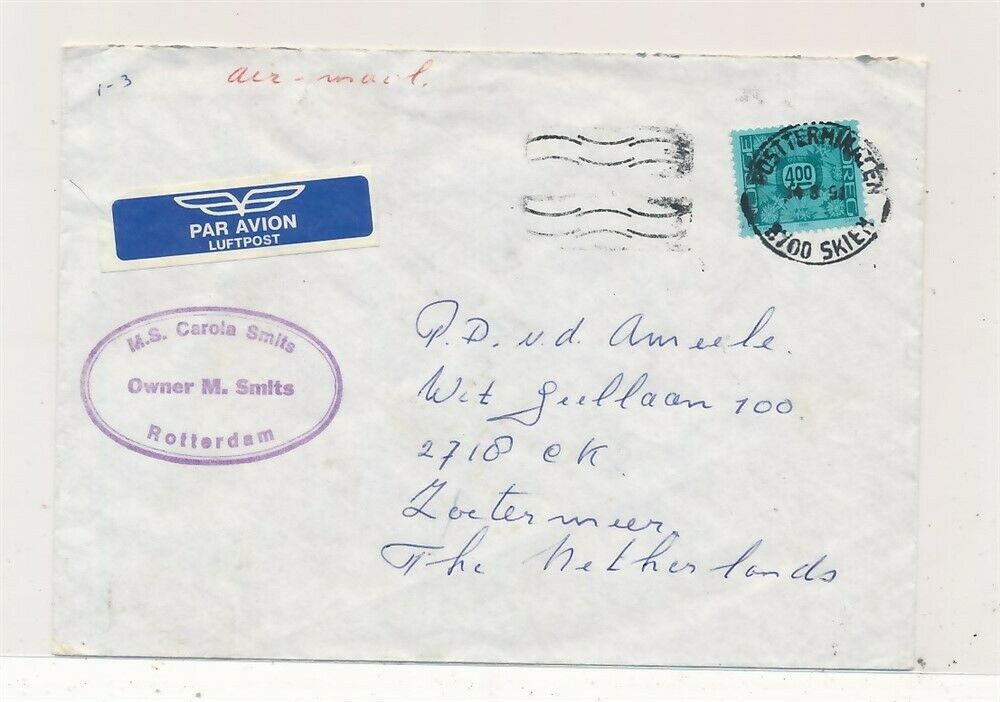 1-3
air-mail.
PAR AVION
LUFTPOST
POSTTERMINALEN
400
NOREG
3700 SKIEN
M.S. Carola Smits
Owner M. Smits
Rotterdam
P.D. v.d. Ameele.
Wit Geellaan 100.
2718 CK
Zoetermeer.
The Netherlands